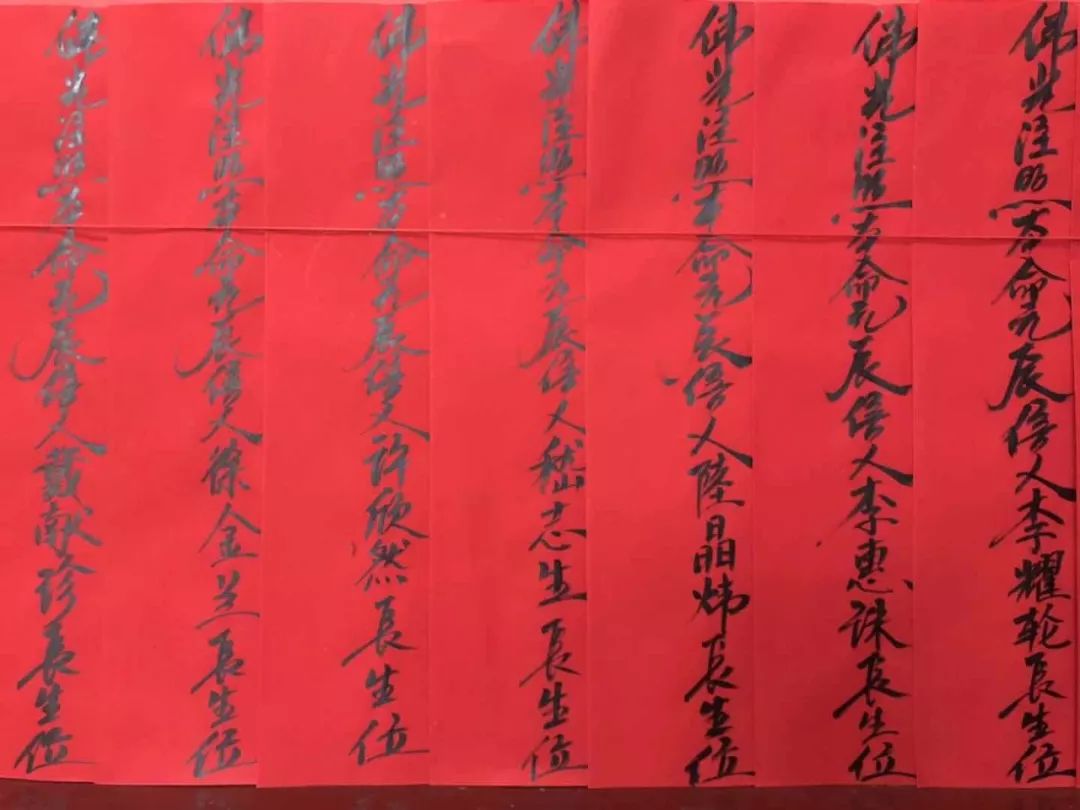 佛光注照本命元辰信人李耀轮長生位
佛光注照本命元辰信人李惠诛長生位
佛光注照本命元辰信人陸晶炜長生位
佛光注照本命元辰信人嵇志生長生位
佛光注照本命元辰信人许欣然長生位
佛光注照本命元辰信人徐金兰長生位
佛光注照本命元辰信人戴献珍長生位